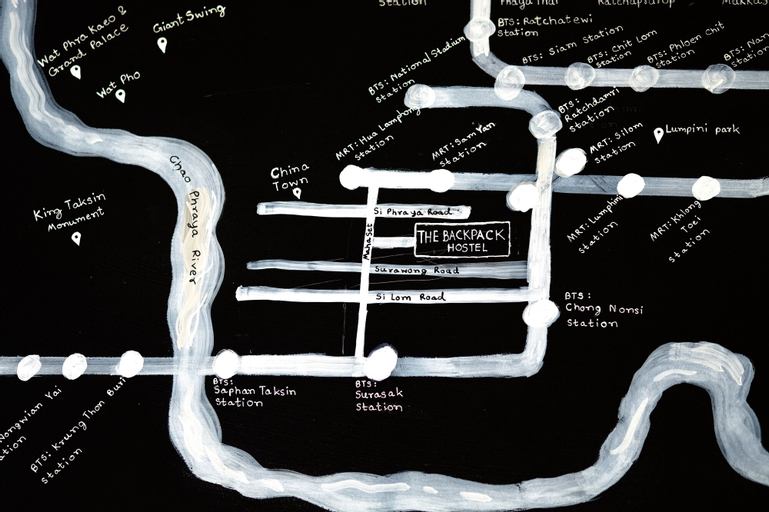 Station
Phaya Thai
Ratchaprarop
Makkas
BTS: Ratchatewi
Station
Giant Swing
Wat Phra Kaeo &
Grand Palace
Wat Pho
BTS: National Stadium
station
BTS: Siam Station
BTS: Chit Lom
Station
BTS: Phloen Chit
Station
BTS: Nan
Station
BTS:
Ratchdamri
Station
MRT: Hua Lamphong
station
MRT: Sam Yan
station
MRT: Silom
station
Lumpini park
Chao Phraya River
China
Town
King Taksin
Monument
Si Phraya Road
Mahaset
THE BACKPACK
HOSTEL
Surawong Road
Si Lom Road
MRT: Lumphini
station
MRT: Khlong
Toei
station
BTS:
Chong Nonsi
Station
BTS:
Saphan Taksin
Station
BTS:
Surasak
Station
Wongwian Yai
ation
BTS: Krung Thon Buri
station